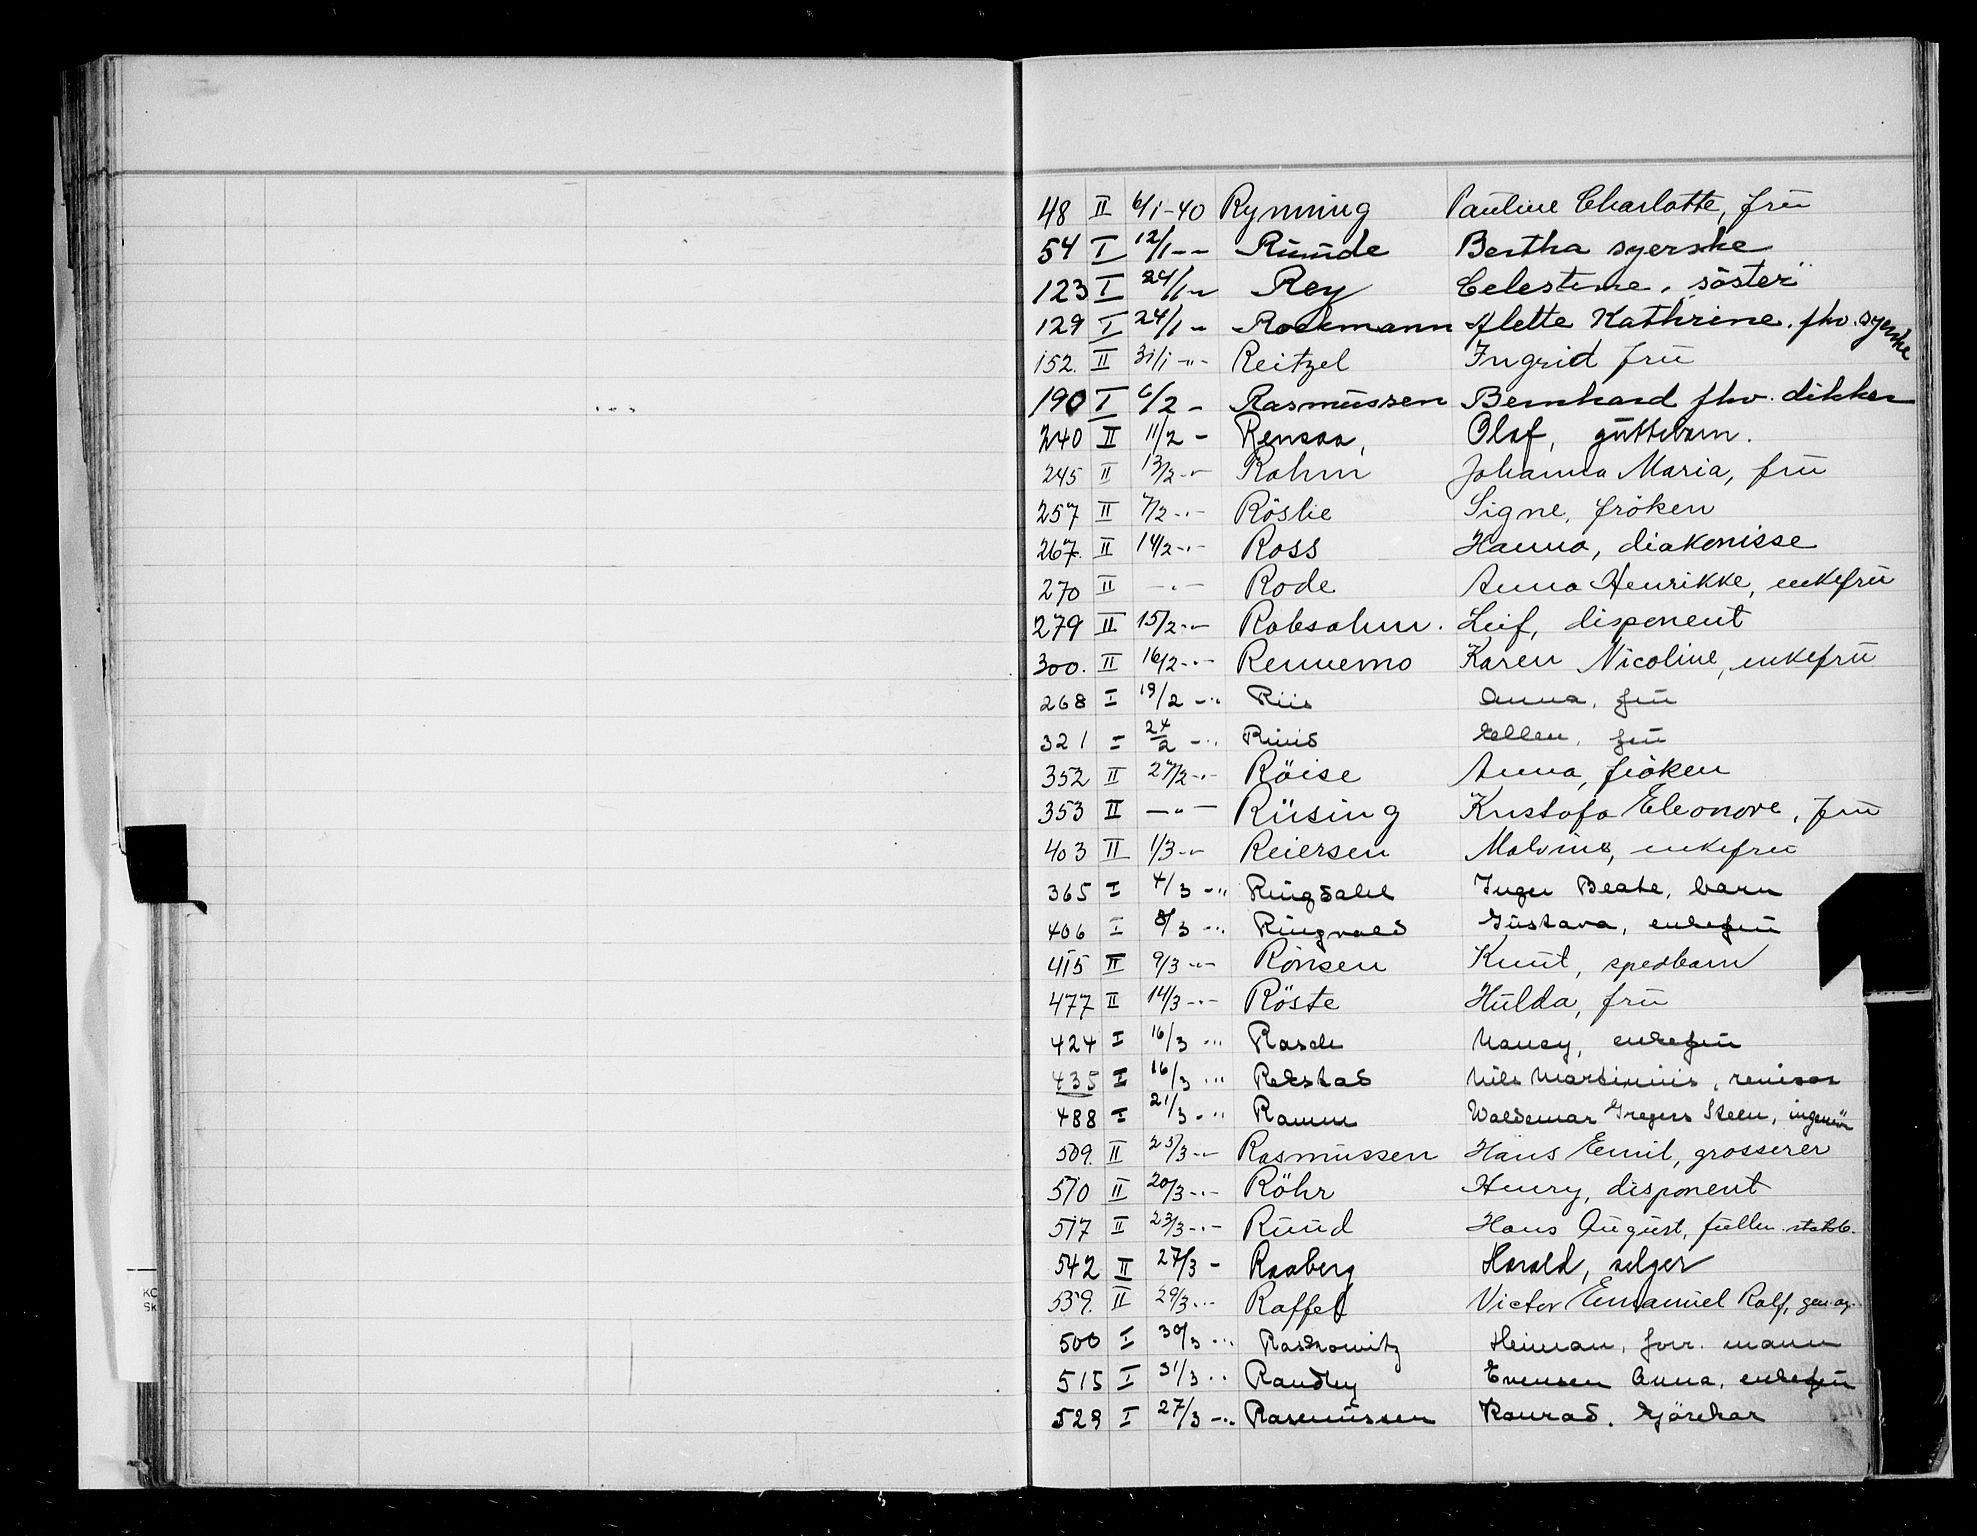 48 II 6/1-40 Rynning Pauline Charlotte, frü
54 I 12/1 -- Ruude Bertha syerske
123 I 24/1 -"- Rey Celestine, söster
129 I 24/1 - Rockmann Alette Kathrine. fhv. syerske
152. II 31/1 -"- Reitzel Ingrid frü
190 I 6/2 - Rasmüssen Bernhard fhv. dikker
240 II 11/2 - Rensaa, Olaf, güttebarn.
245 II 13/2 -"- Rahm Johanna Maria, frü
257 II 7/2 -"- Röslie Signe, fröken
267. II 14/2 -"- Ross Hanna, diakonisse
270 II -"- Rode Anna Henrikke, enkefrü
279 II 15/2 -"- Robsahm. Leif, disponent
300. II 16/2 -"- Rennemo Karen Nicoline, enkefrü
268 I 19/2 -"- Riis Anna, frü
321 I 24/2 -"- Ellen, frü
352 II 27/2 -"- Röise Anna, fröken
353 II -"- Rüsing Kristofa Eleonore, frü
403 II 1/3 -"- Reiersen Malvine, enkefrü
365 I 4/3 -"- Ringdahl Inger Beate, barn
406 I 8/3 -"- Ringvold Güstava, enkefrü
415 II 9/3 -"- Rönsen Knüt, spedbarn
477 II 14/3 -"- Röste Hülda, frü
424 I 16/3 -"- Rasch Nancy, enkefrü
435 I 16/3 -"- Rekstad Nils Martinius, revisor
488 I 21/3 -"- Ramm Waldemar Gregers Steen, ingeniör
509. II 25/3 -"- Rasmüssen Hans Emil, grosserer
510 II 20/3 -"- Röhr Henry, disponent
517 II 23/3 -"- Ruud Hans Aügüst, füllm. statsb.
542 II 27/3 - Raaberg Harald, selger
539. II 29/3 -"- Raffel Victor Emanüel Ralf, gen. ag.
500 I 30/3 -"- Raskowitz Heiman, forr. mann
515 I 31/3 -"- Randby Evensen Anna, enkefrü
529 I 27/3 -"- Rasmüssen Konrad. kjörekar